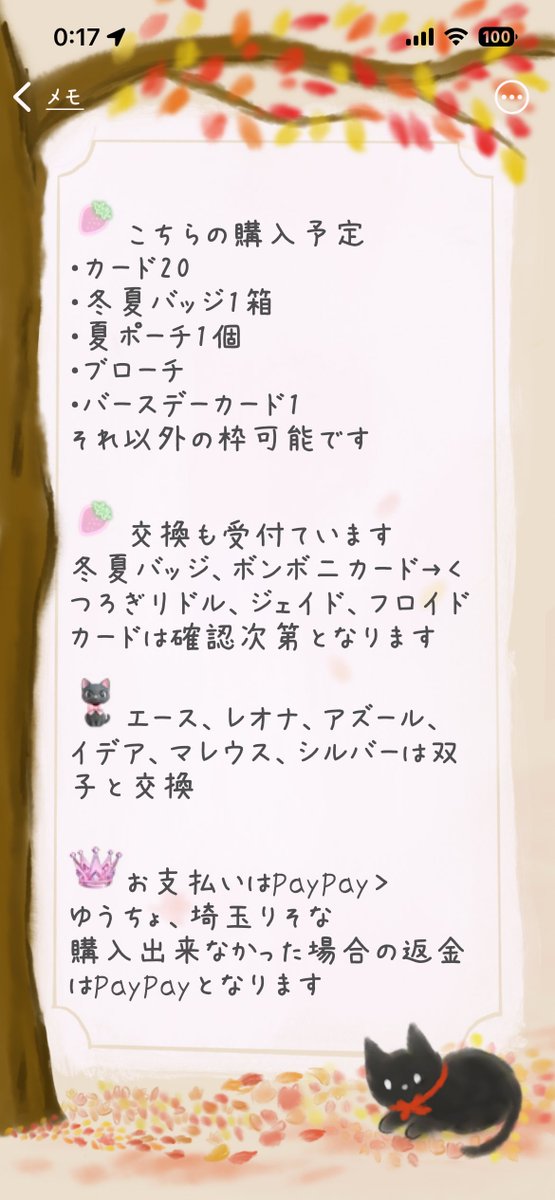 0:17
100
メモ
こちらの購入予定
・カード20
・冬夏バッジ1箱
・夏ポーチ1個
・ブローチ
・バースデーカード1
それ以外の枠可能です
交換も受付ています
冬夏バッジ、ボンボニカード→く
つろぎリドル、ジェイド、フロイド
カードは確認次第となります
エース、レオナ、アズール、
イデア、マレウス、シルバーは双
子と交換
お支払いはPayPay>
ゆうちょ、埼玉りそな
購入出来なかった場合の返金
はPayPayとなります